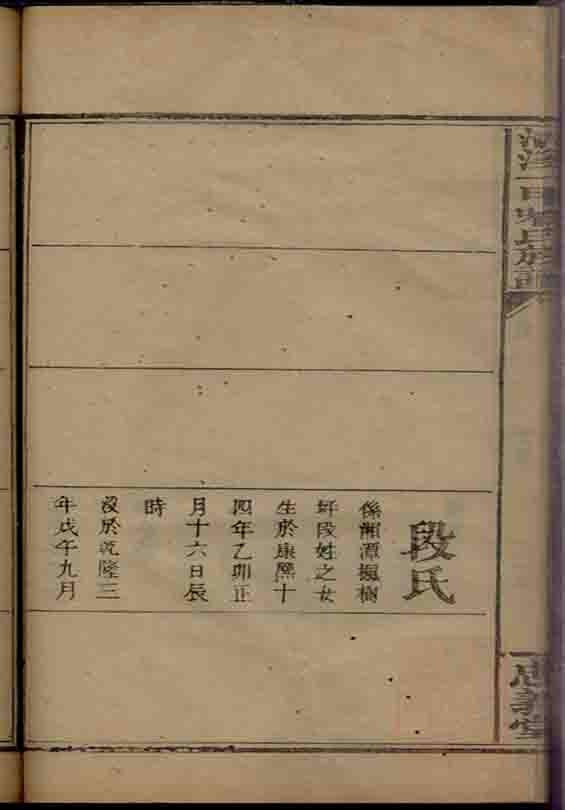 段氏
係湘潭楓樹
坪段姓之女
生於康熙十
四年乙卯正
月十六日辰
時
沒於乾隆三
年戊午九月